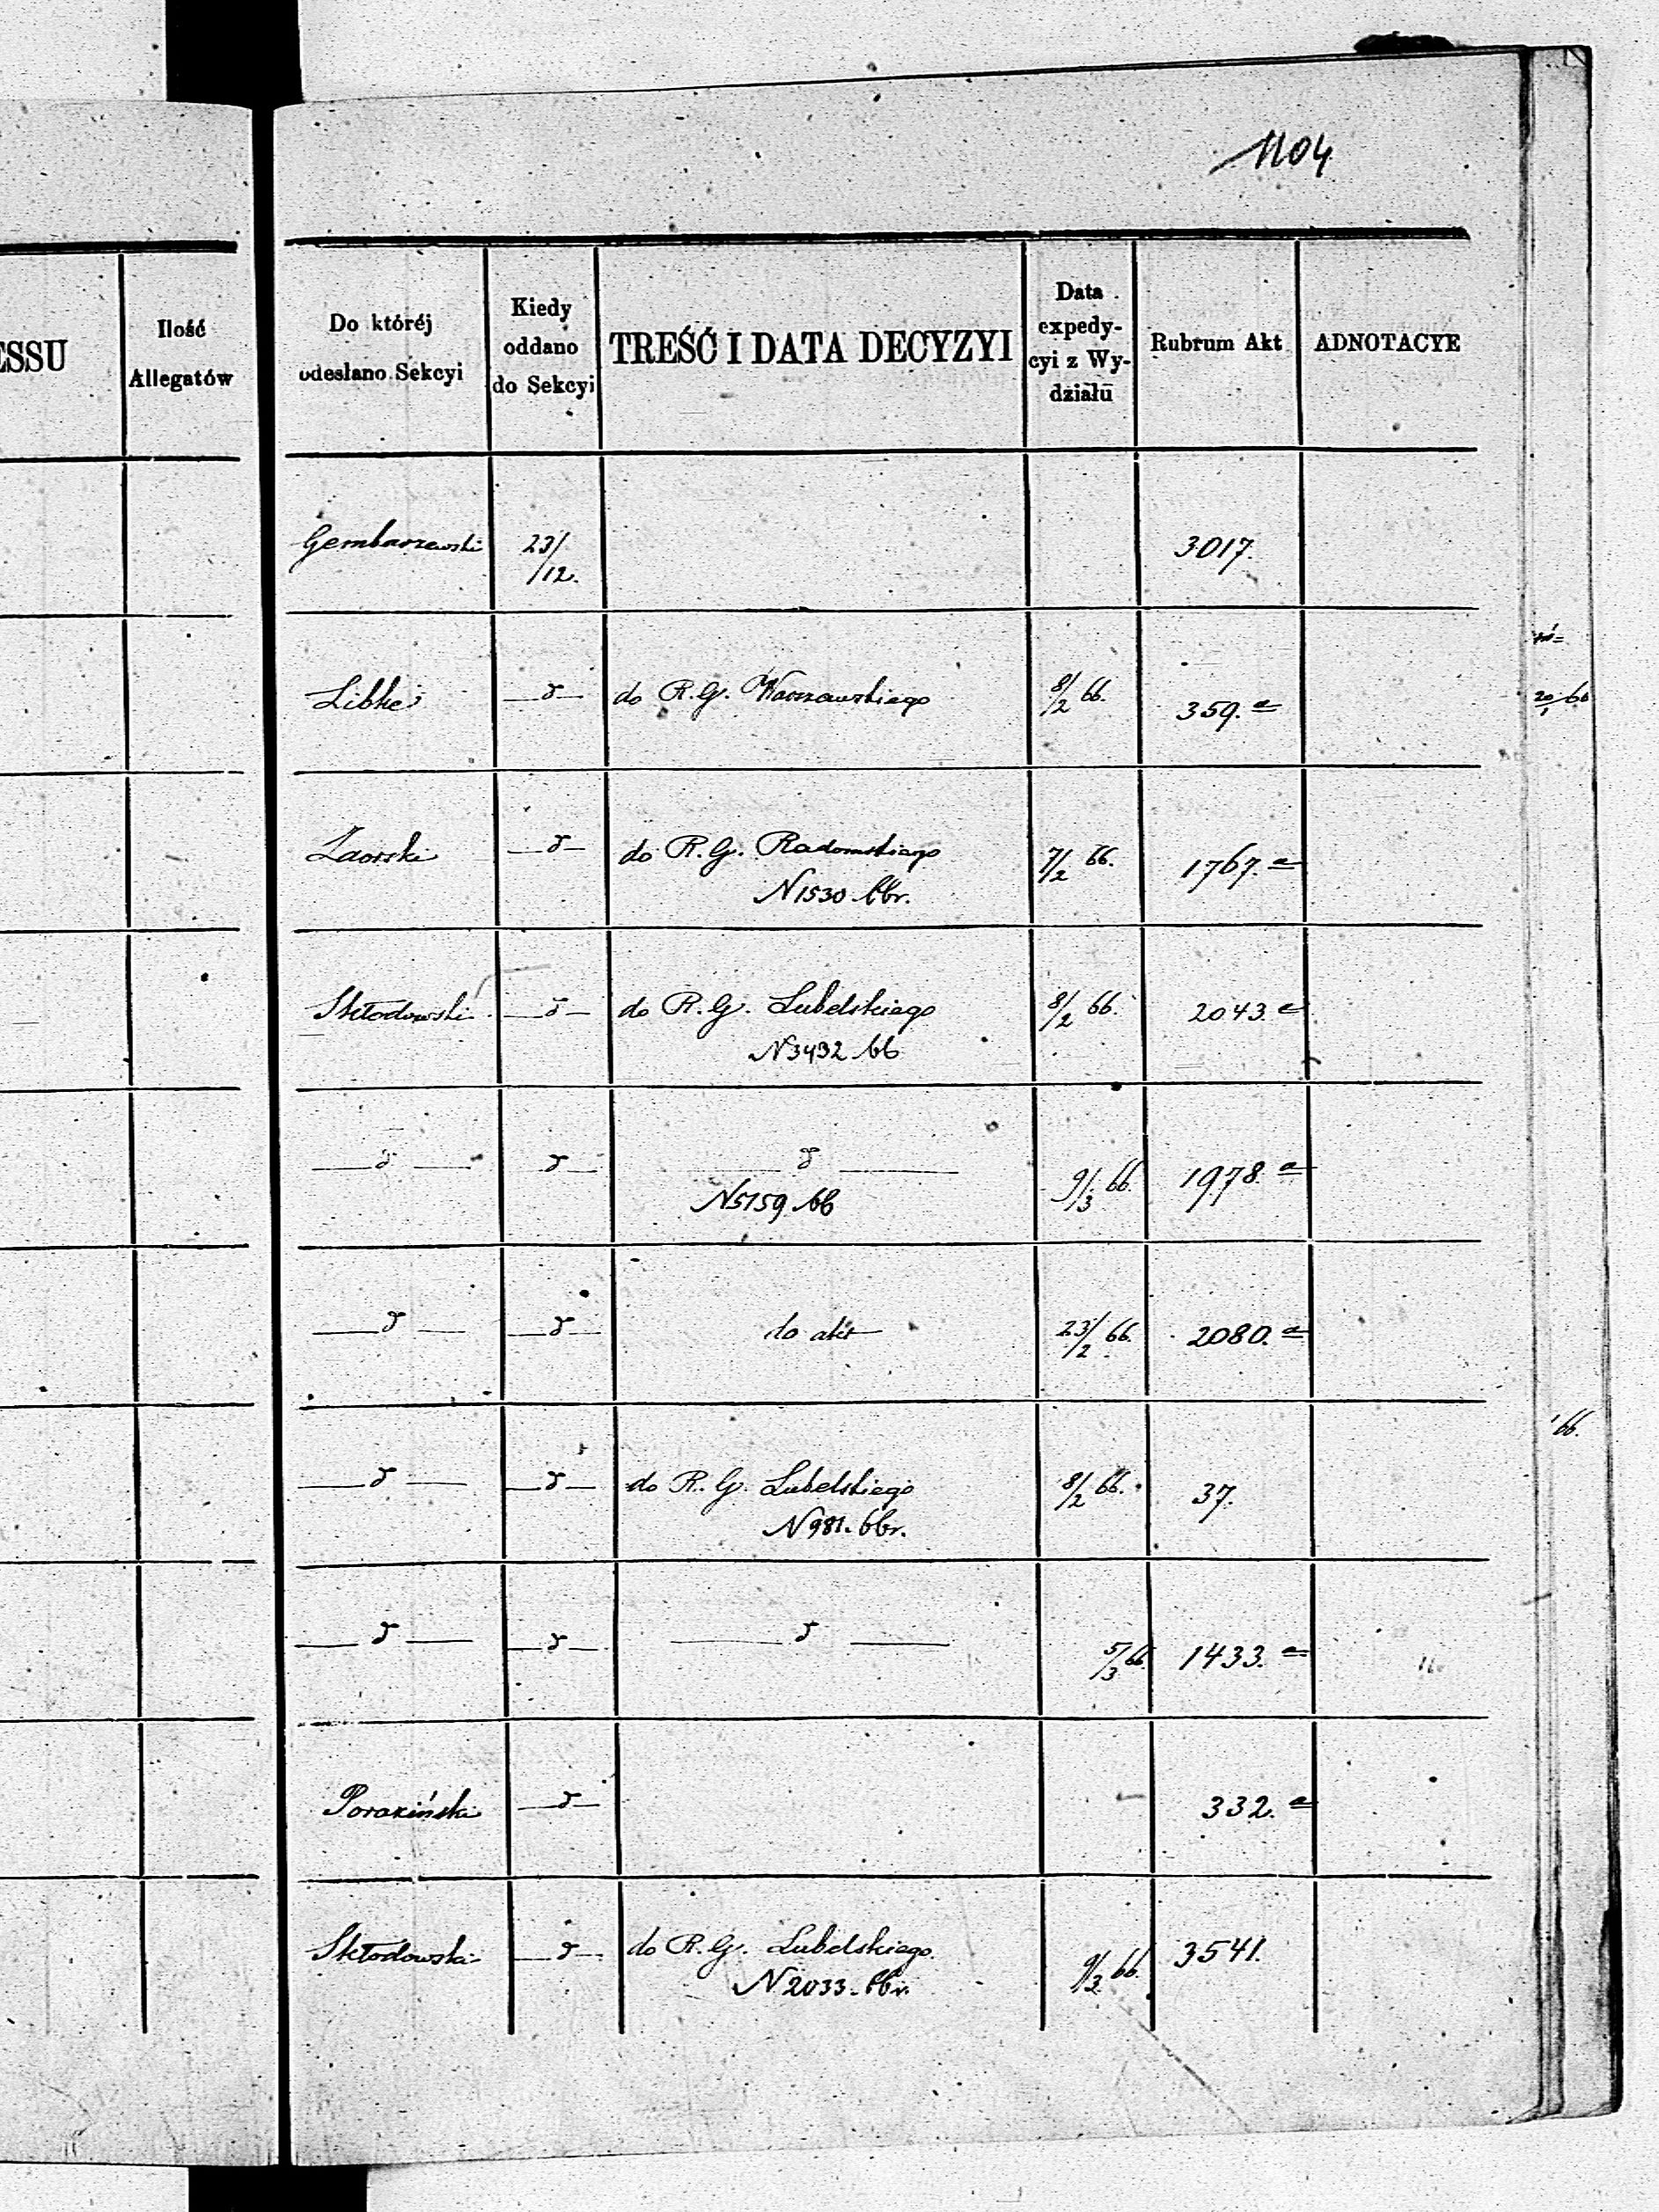 1104
ESSU
Ilość
Allegatów
Do któréj
odesłano Sekcyi
Kiedy
oddano
do Sekcyi
TREŚĆ I DATA DECYZYI
Data
expedy-
cyi z Wy-
działu
Rubrum Akt
ADNOTACYE
Gembarzewski 23/12. 3017.
Libke — d — do R. G. Warszawskiego 8/2 66. 359. a
Zaorski — d — do R. G. Radomskiego 7/2 66. 1767. a
N 1530 66r.
Skłodowski — d — do R. G. Lubelskiego 8/2 66. 2043. a
N 3432 66
— d — — d — — d — 9/3 66. 1978. a
N 5159 66
— d — — d — do akt 23/2 66. 2080. a
— d — — d — do R. G. Lubelskiego 8/2 66. 37.
N 981. 66r.
— d — — d — — d — 5/3 66. 1433. a
Poraziński — d — 332. a
Skłodowski — d — do R. G. Lubelskiego 9/3 66 3541.
N 2033. 66r.
20/1 66
66.